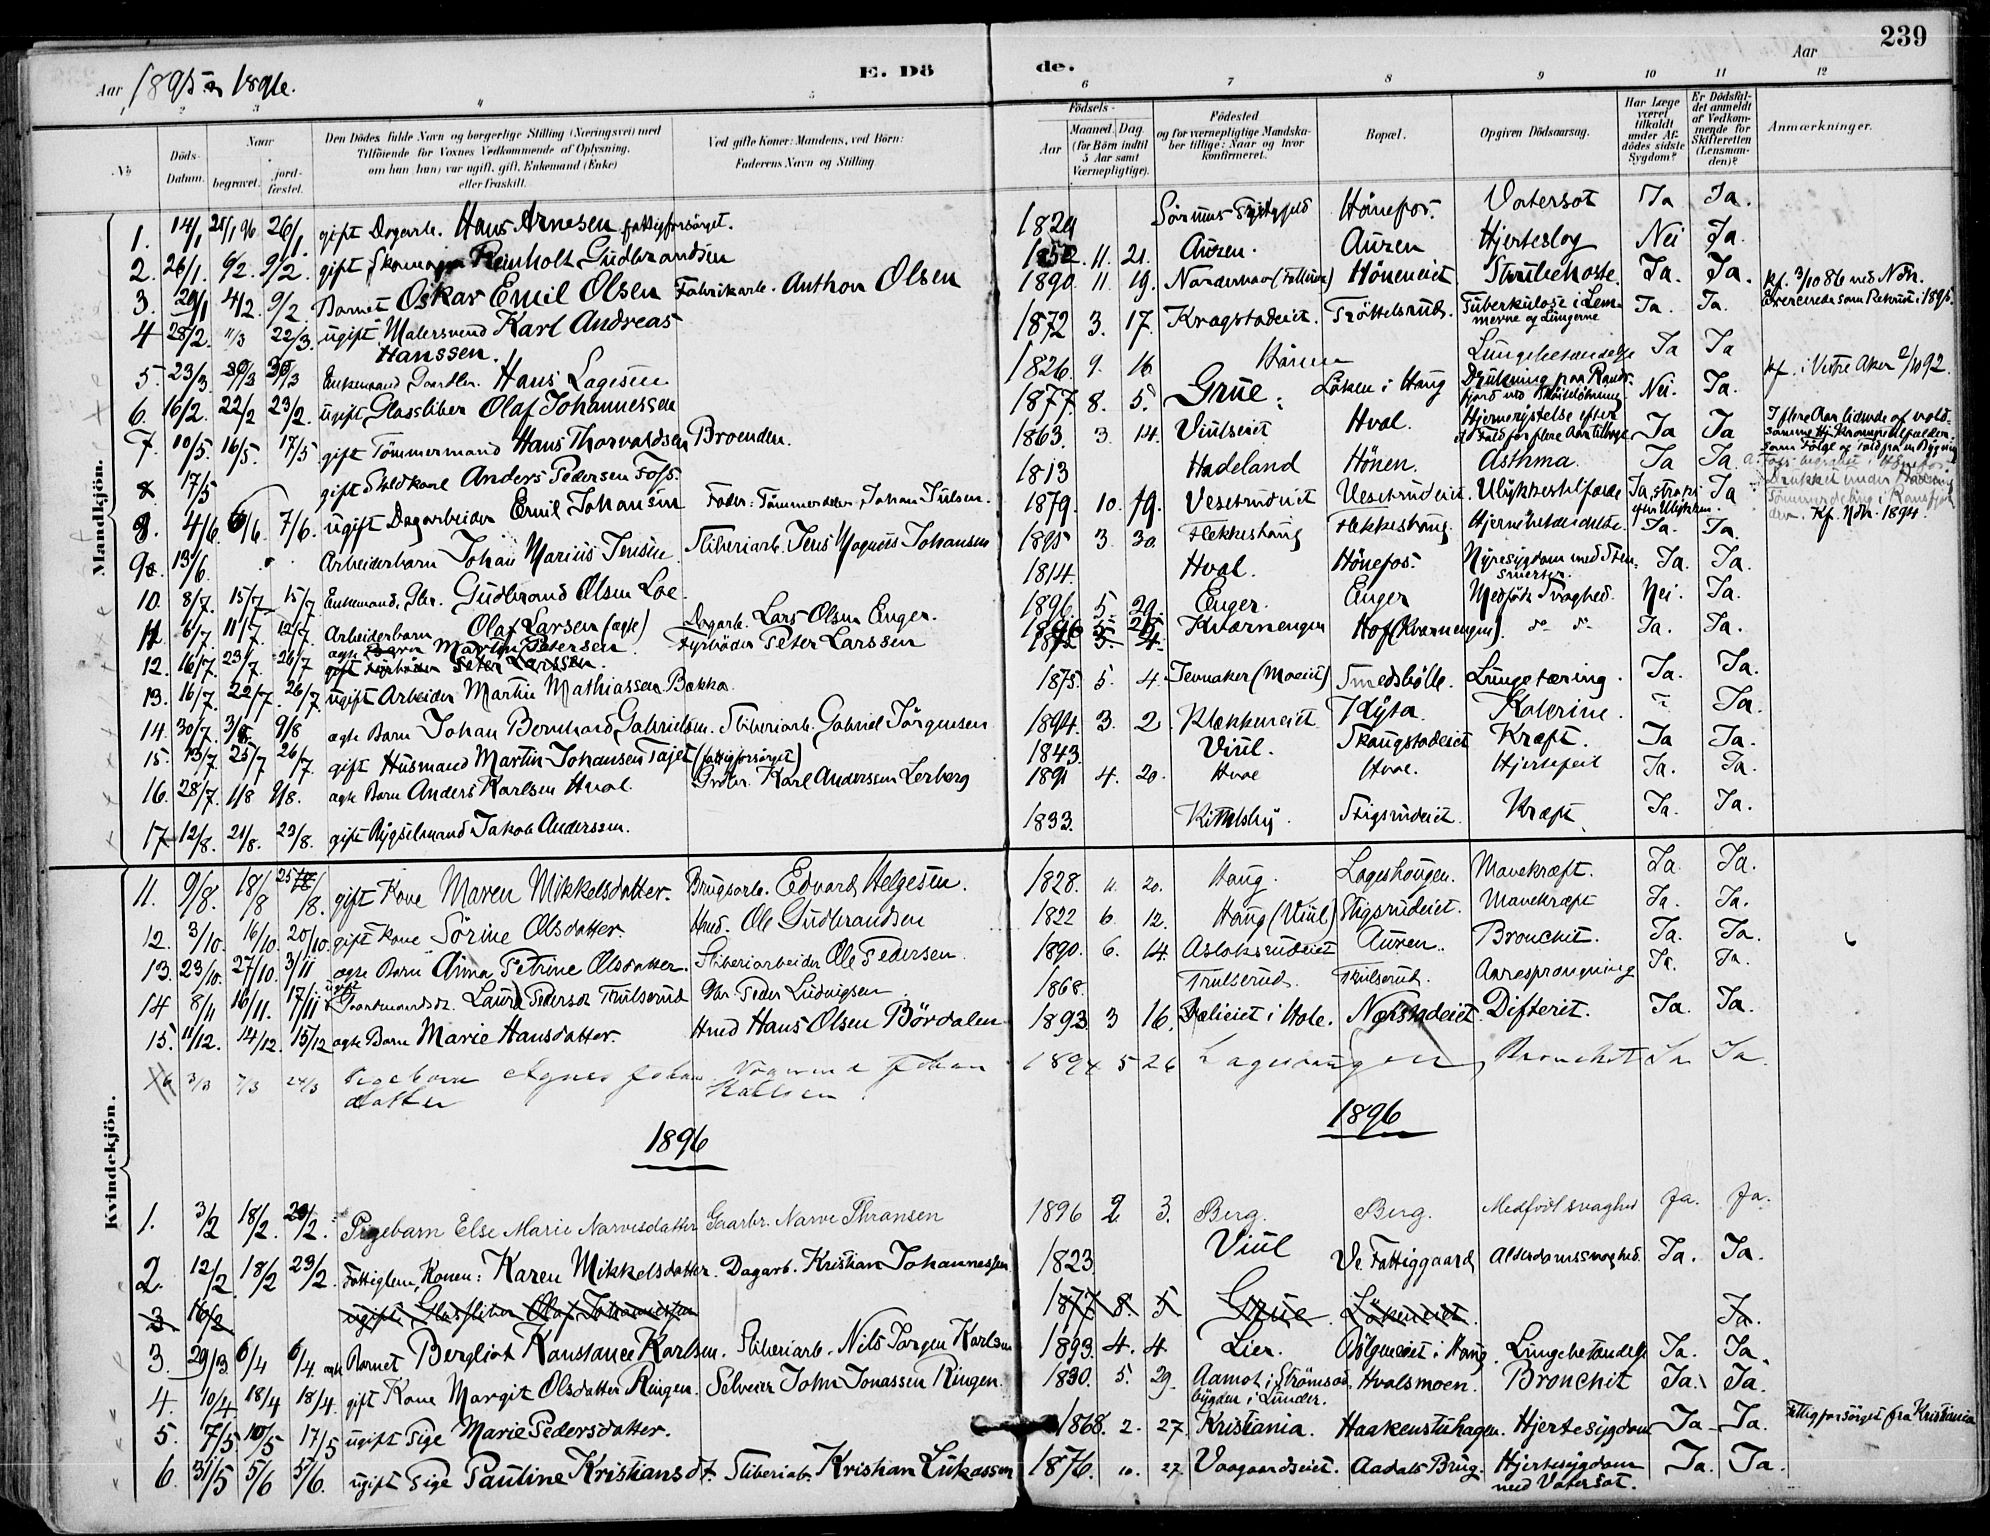 239
Aar 1895 og 1896. E. Dö de. Aar
1 2 3 4 5 6 7 8 9 10 11 12
No. Döds-Datum. Naar begravet. jord-fæstet.
Den Dödes fulde Navn og borgerlige Stilling (Næringsvei) med Tilföiende for Voxnes Vedkommende af Oplysning, om han (hun) var ugift, gift, Enkemand (Enke) eller fraskilt.
Ved gifte Koner: Mandens, ved Börn: Faderens Navn og Stilling
Födsels- Aar Maaned. Dag. (for Börn indtil 5 Aar samt Værnepligtige).
Födested og for værnepligtige Mandskaber tillige: Naar og hvor konfirmeret.
Bopæl.
Opgiven Dödsaarsag.
Har Læge været tilkaldt under Afdödes sidste Sygdom?
Er Dödsfaldet anmeldt af Vedkommende for Skifteretten (Lensmanden)?
Anmærkninger.
Mandkjön.
1. 14/1 21/1 96 26/1 gift Dagarb. Hans Arnesen fattigforsörget. 1824 Hönefos. Vatersot Ja Ja.
2. 26/1. 6/2. 9/2. gift Skomager Reinholt Gudbrandsen 1852. 11. 21. Auren. Auren Hjerteslag Nei Ja.
3. 29/1 4/2. 9/2. Barnet Oskar Emil Olsen Fabrikarb. Anthon Olsen 1890. 11. 19. Hönemeiet Strubehoste. Ja. Ja.
4 28/2. 11/3 22/3. ugift Malersvend Karl Andreas Hanssen. 1872 3. 17. Kragstadeiet. Tröttelsrud. Tuberkulose i Lemmerne og Lungerne Ja. Ja. kf. 3/10 86 ved Ndh. Exercerede som Rekrut i 1895.
5. 23/3. 30/3 30/3 Enkemand Gaardbr. Hans Lagesen 1826. 9. 16 Hönen Lungebetændelse Ja Ja
6. 16/2. 22/2 23/2. ugift Glassliber Olaf Johannessen 1877. 8. 5. Grue. Löken i Haug Drukning paa Randsfjord ved Nei. Ja. kf. i Vestre Aker 2/10 92.
7. 10/5. 16/5. 17/5 gift Tömmermand Hans Thorvaldsen Braenden. 1863. 3. 14. Viulseiet Hval. Hjernerystelse efter et Fald for flere Aar tilbage Ja Ja I flere Aar lidende af voldsomme
8 17/5 gift Anders Pedersen Foss. 1813 Hadeland Hönen. Asthma. Ja Ja.
8. 4/6. 6/6. 7/6. ugift Dagarbeider Emil Johansen Fader: Johan Julsen. 1879. 10. 19. Vesetrudeiet Vesetrudeiet. Ulykkestilfælde Ja, straks efter Ulykken. Ja Kf. Ndh. 1894.
9. 13/6. Arbeiderbarn Johan Marius Jensen. Sliberiarb. Jens Magnus Johansen 1895 3. 30. Flekkeshaug Flekkeshaug. Hjernebetændelse. Ja. Ja.
10. 8/7. 15/7 15/7. Enkemand, Gudbrand Olsen Loe. 1814. Hval. Hönefos. Nyresygdom med Stensmerter. Ja. Ja.
11. 6/7. 11/7. 12/7. Arbeiderbarn Olaf Larsen (ægte) Dagarb. Lars Olsen Enger. 1896. 5. 29. Enger. Enger Medfödt Svaghed. Nei. Ja.
12. 16/7. 23/7 26/7 ægte Barn Martin Petersen. Fyrböder Peter Larssen Kværnengen Hof (Kværnengen). do do Ja. Ja.
gift Fyrböder Peter Larssen.
13. 16/7. 22/7. 26/7. ugift Arbeider Martin Mathiassen Bakka. 1875. 5. 4. Jevnaker (Moeiet) Smedsbölle. Lungetæring. Ja. Ja.
14. 30/7. 3/8. 9/8 ægte Barn Johan Bernhard Gabrielsen. Sliberiarb. Gabriel Jörgensen 1894. 3. 2. Klækkeneiet Klysta. Kolerine. Ja.
15. 13/7. 25/7 26/7. gift Husmand Martin Johansen Tajet (fattigforsörget) 1843. Viul. Skaugstadeiet Kræft. Ja Ja.
16. 28/7. 1/8 9/8. ægte Barn Anders Karlsen Hval. Grdbr. Karl Anderssen Lerberg 1891 4. 20. Hval Hval. Hjertefeil Ja. Ja.
17 12/8. 21/8. 23/8. gift Bygselmand Jakob Anderssen. 1833. Kittelsby. Stigsrudeiet. Kræft. Ja. Ja.
Kvindekjön.
11. 9/8. 18/8 25/8. gift Kone Maren Mikkelsdatter. Brugsarb. Edvard Helgesen. 1828. 11. 20. Haug. Lageshaugen. Mavekræft. Ja. Ja.
12. 3/10. 16/10. 20/10. gift Kone Sörine Olsdatter. Hmd. Ole Gudbrandsen 1822 6. 12. Haug (Viul) Stigsrudeiet. Mavekræft Ja. Ja.
13. 23/10. 27/10. 3/11 ægte Barn Anna Petrine Olsdatter. Sliberiarbeider Ole Pedersen. 1890. 6. 14. Aslaksrudeiet Auren. Bronchit. Ja. Ja.
14 8/11 16/11. 17/11 ugift Laura Pedersdt. Trulserud Gbr. Peder Ludvigsen 1868. Trulserud. Trulserud. Aaresprængning Ja. Ja.
15. 11/12. 14/12. 15/12 ægte Barn Marie Hansdatter. Hmd Hans Olsen Bördalen 1893 3 16. Dælieiet i Hole. Næstadeiet. Difterit. Ja. Ja.
16 3/3 7/3 24/3 Pigebarn Agnes Johansdatter Johan Karlsen 1894 5 26 Lageshaugen Bronchit Ja Ja
1896 1896
1. 3/2 18/2. 20/2. Pigebarn Else Marie Narvesdatter Gaarbr. Narve Thransen 1896 2 3. Berg. Berg. Medfödt svaghed Ja. Ja.
2. 12/2. 18/2 23/2. Fattiglem, Konen: Karen Mikkelsdatter. Dagarb. Kristian Johannessen 1823 Viul Ve Fattiggaard Alderdomssvaghed. Ja. Ja.
3 16/2 ugift Glassliber Olaf Johannessen 1877 8. 5 Grue Lökeneiet. Ja.
3. 29/3 6/4 6/4. ægte Barnet Bergliot Konstance Karlsen. Sliberiarb. Nils Jörgen Karlsen 1893. 4. 4 Lier. i Haug. Lungebetændelse Ja. Ja.
4. 10/4. 18/4 18/4. gift Kone Margit Olsdatter Ringen. Selveier John Jonassen Ringen. 1830. 5. 29. Aamot i Strömsodbygden i Lunder. Hvalsmoen. Bronchit Ja. Ja.
5. 7/5 10/5 17/5 ugift Pige Marie Pedersdatter. 1868. 2. 27. Kristiania. Haakenstuhagen. Hjertesygdom Ja Ja. Fattigforsörget fra Kristiania
6. 31/5 5/6 5/6. ugift Pige Pauline Kristiansdt. Sliberiab. Kristian Lukassen 1876. 10. 27. Vaagaardseiet. Aadals Brug. Hjertesygdom med Vatersot. Ja. Ja.